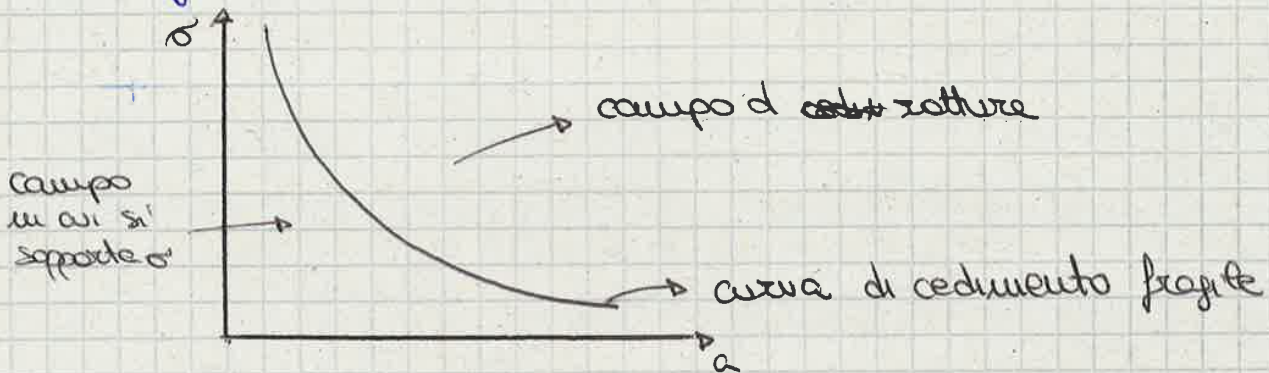 σ
campo d rotture
campo
in cui si
sopporte σ
curva di cedimento fragile
a